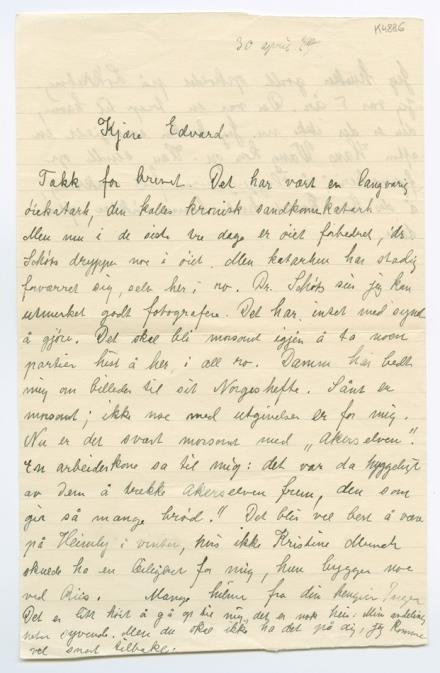 K4886
30 april
Kjære Edvard.
Takk for brevet. Det har vært en langvarig
öiekatark, den kalles kronisk sandkornkatark
Men nu i de siste tre dage er öiet forbedret, dr.
Schiöts drypper noe i öiet. Men katarken har stadig
forværret sig, selv her i ro. Dr. Schiöts sier jeg kan
utmerket godt fotografere. Det har intet med synet
å gjöre. Det skal bli morsomt igjen å ta noen
partier hist å her, i all ro. Damm har bedt
mig om billeder til sit Norgeshefte. Sånt er
morsomt; ikke noe med utgivelser er for mig.
Nu er det svært morsomt med „Akerselven".
En arbeiderkone sa til mig: det var da hyggeligt
av Dem å trekke Akerselven frem, den som
gir så mange bröd!" Det blir vel best å være
på Heimly i vinter, hvis ikke Kristine Munch
skulde ha en leilighet for mig, hun bygger noe
ved Riis. Mange hilsner fra din hengivne Inger
Det er litt koldt å gå op til mig, det er nok
syvende. Men du skal ikke ha det på dig, jeg kommer
vel snart tilbake.